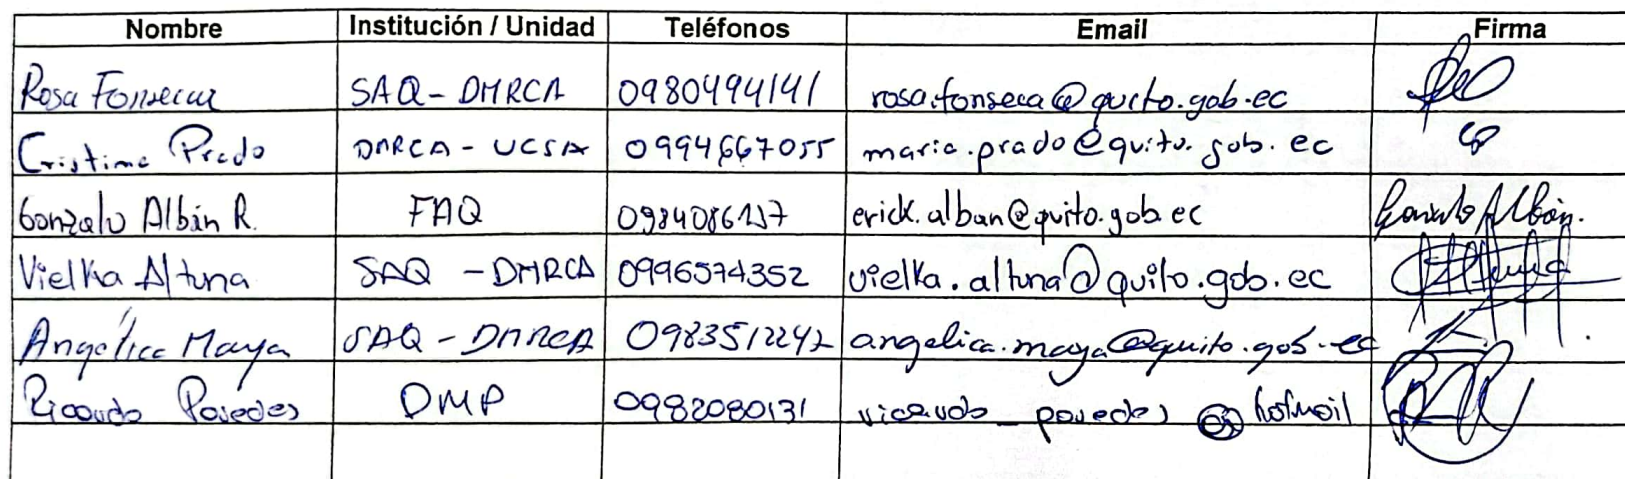 Nombre Institución / Unidad Teléfonos Email Firma
Rosa Fonseca SAQ - DMRCA 0980494141 rosa.fonseca@quito.gob.ec
Cristina Prado DMRCA - UCSA 0994667055 maria.prado@quito.gob.ec
Gonzalo Albán R. FAQ 0984086137 erick.alban@quito.gob.ec Gonzalo Albán.
Vielka Altuna SAQ - DMRCA 0996574352 vielka.altuna@quito.gob.ec
Angélica Maya SAQ - DMRCA 0983512242 angelica.maya@quito.gob.ec
Ricardo Paredes DMP 0982080131 ricardo_paredes @ hotmail